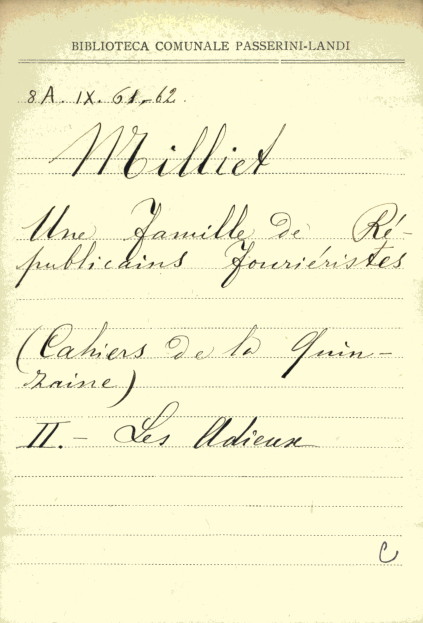 BIBLIOTECA COMUNALE PASSERINI-LANDI
8A. IX. 61-62.
Milliet
Une Famille de Ré-
publicains Fouriéristes
(Cahiers de la Quin-
zaine)
II.- Les Adieux
C